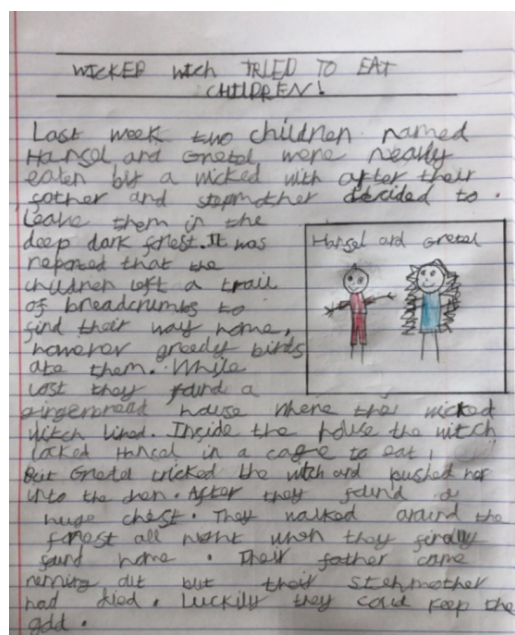 WICKED wich TRIED TO EAT
CHILDREN!
Last week two children named
Hansel and Gretel were nearly
eaten by a wicked witch after their
father and stepmother decided to
leave them in the
deep dark forest. It was
reported that the
children left a trail
of breadcrumbs to
find their way home,
however greedy birds
ate them. While
lost they found a
gingerbread house where the wicked
witch lived. Inside the house the witch
locked Hansel in a cage to eat,
But Gretel tricked the witch and pushed her
into the oven. After they found a
huge chest. They walked around the
forest all night when they finally
found home. Their father came
running out but their stepmother
had died. Luckily they could keep the
gold.
Hansel and Gretel